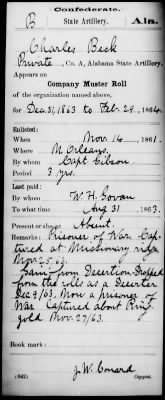 Confederate.
B State Artillery. Ala.
Charles Beck
Private, Co. A, Alabama State Artillery.
Appears on
Company Muster Roll
of the organization named above,
for Dec 31, 1863 to Feb 29, 1864.
Enlisted:
When Nov. 14, 1861.
Where N. Orleans.
By whom Capt Gibson
Period 3 yrs.
Last paid:
By whom W. H. Govan
To what time Aug 31, 1863.
Present or absent Absent.
Remarks: Prisoner of War. Cap-
tured at Missionary ridge
Nov. 25/63.
from Desertion Dropped
from the rolls as a Deserter
Dec 9/63. Now a prisoner of
War. Captured about Ring-
gold Nov. 27/63.
Book mark:
J. W. Conard
(642) Copyist.